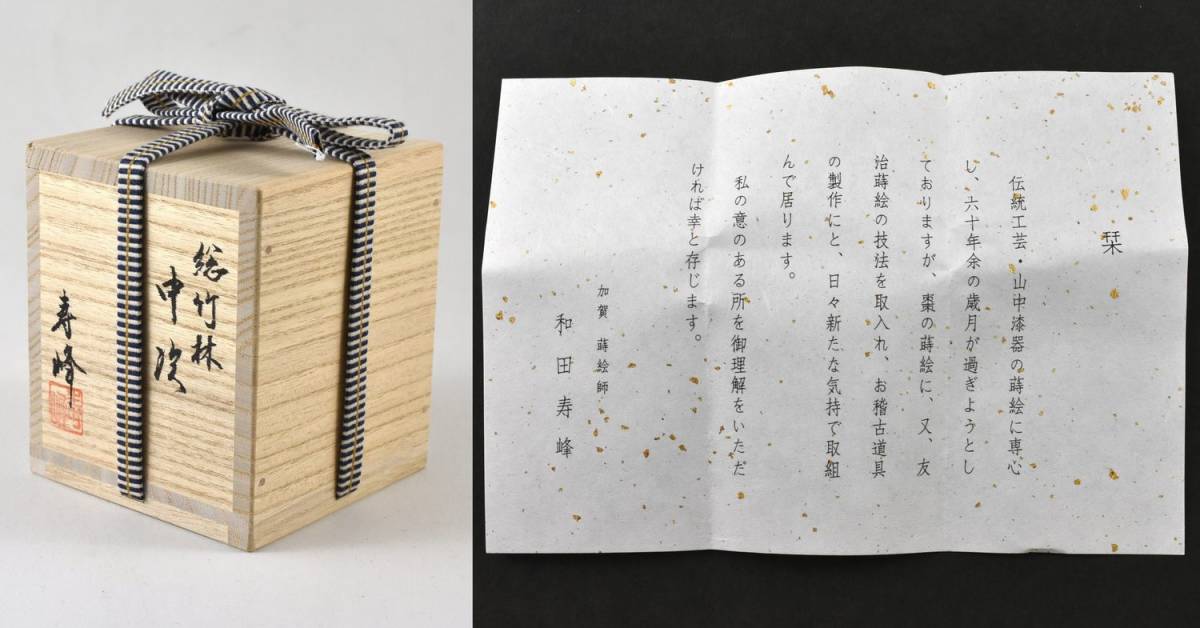 総竹林
中次
寿峰
栞
伝統工芸・山中漆器の蒔絵に専心
し、六十年余の歳月が過ぎようとし
ておりますが、棗の蒔絵に、又、友
治蒔絵の技法を取入れ、お稽古道具
の製作にと、日々新たな気持で取組
んで居ります。
私の意のある所を御理解をいただ
ければ幸と存じます。
加賀 蒔絵師
和田寿峰